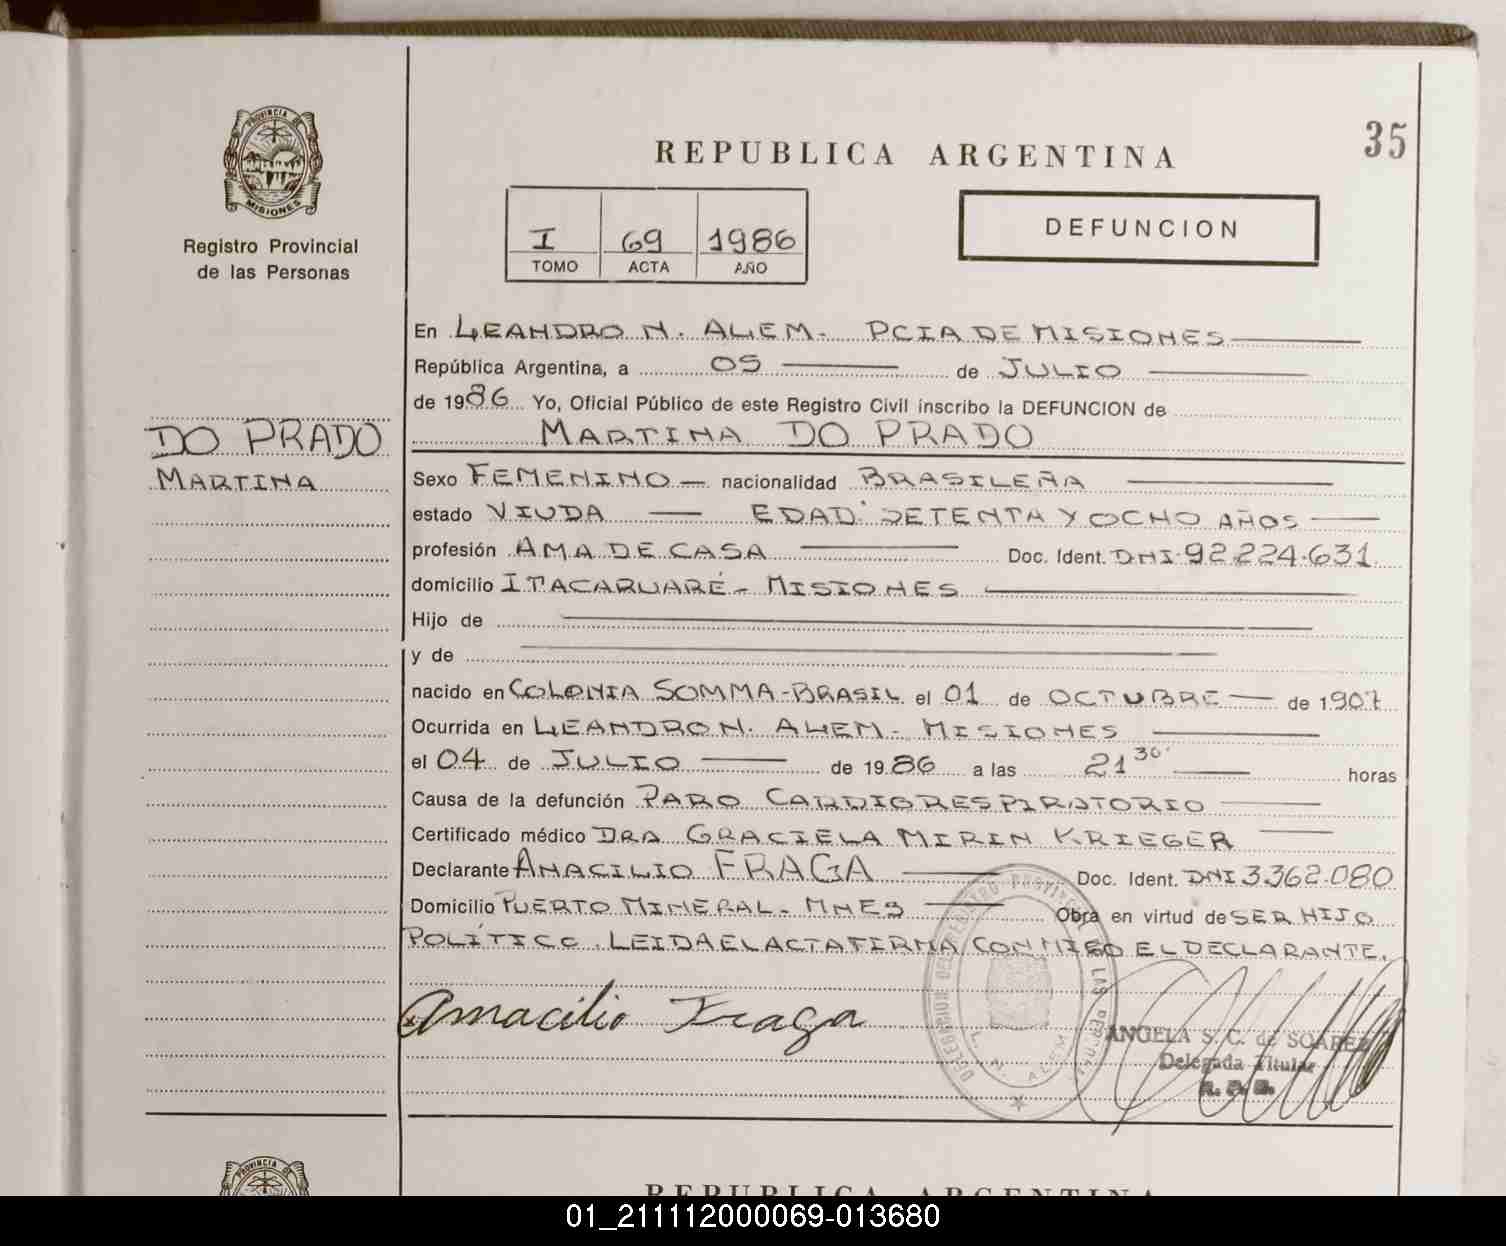 PROVINCIA DE
MISIONES
Registro Provincial
de las Personas
DO PRADO
MARTINA
35
REPUBLICA ARGENTINA
I 69 1986
TOMO ACTA AÑO
DEFUNCION
En LEANDRO N. ALEM. PCIA DE MISIONES
República Argentina, a 05 de JULIO
de 1986 Yo, Oficial Público de este Registro Civil inscribo la DEFUNCION de
MARTINA DO PRADO
Sexo FEMENINO nacionalidad BRASILEÑA
estado VIUDA EDAD: SETENTA Y OCHO AÑOS
profesión AMA DE CASA Doc. Ident. DNI.92.224.631
domicilio ITACARUARÉ - MISIONES
Hijo de
y de
nacido en COLONIA SOMMA-BRASIL el 01 de OCTUBRE de 1907
Ocurrida en LEANDRO N. ALEM - MISIONES
el 04 de JULIO de 1986 a las 21 30 horas
Causa de la defunción PARO CARDIORESPIRATORIO
Certificado médico DRA GRACIELA MIRIN KRIEGER
Declarante AMACILIO FRAGA Doc. Ident. DNI 3.362.080
Domicilio PUERTO MINERAL. MNES Obra en virtud de SER HIJO
POLÍTICO. LEIDA EL ACTA FIRMA CONMIGO EL DECLARANTE.
Amacilio Fraga
ANGELA S. C. de SOAREZ
Delegada Titular
L. N. ALEM
PROVINCIA DE
REPUBLICA ARGENTINA
01_211112000069-013680